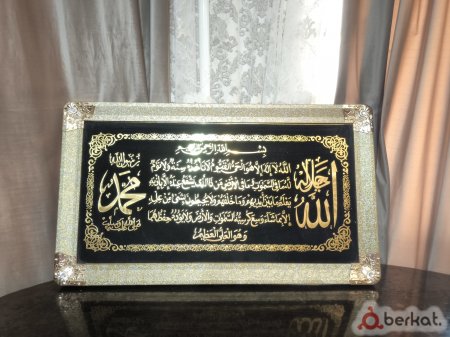 بسم الله الرحمن الرحيم
الله لا إله إلا هو الحي القيوم لا تأخذه سنة ولا نوم
له ما في السموات وما في الأرض من ذا الذي يشفع عنده إلا بإذنه
يعلم ما بين أيديهم وما خلفهم ولا يحيطون بشيء من علمه
إلا بما شاء وسع كرسيه السموات والأرض ولا يؤده حفظهما
وهو العلي العظيم
الله
جل جلاله
محمد
berkat.